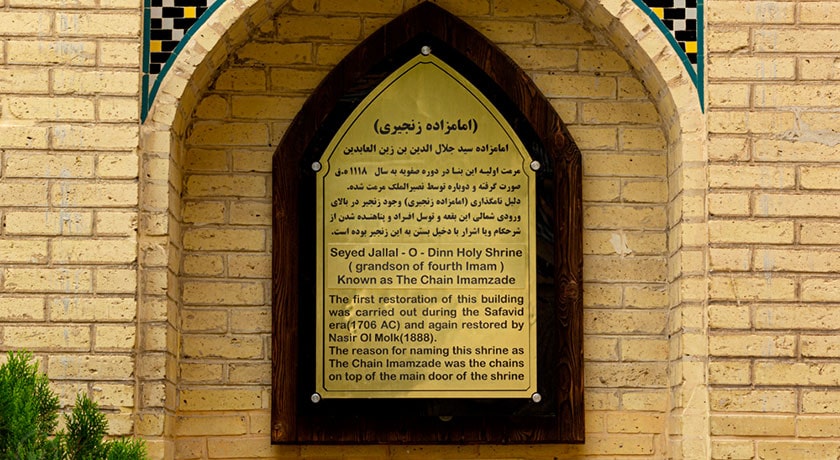 (امامزاده زنجیری)
امامزاده سید جلال الدین بن زین العابدین
مرمت اولیه این بنا در دوره صفویه به سال ۱۱۱۸ ه.ق
صورت گرفته و دوباره توسط نصیرالملک مرمت شده.
دلیل نامگذاری (امامزاده زنجیری) وجود زنجیر در بالای
ورودی شمالی این بقعه و توسل افراد و پناهنده شدن از
شرحکام ویا اشرار با دخیل بستن به این زنجیر بوده است.
Seyed Jallal - O - Dinn Holy Shrine
( grandson of fourth Imam )
Known as The Chain Imamzade
The first restoration of this building
was carried out during the Safavid
era(1706 AC) and again restored by
Nasir Ol Molk(1888).
The reason for naming this shrine as
The Chain Imamzade was the chains
on top of the main door of the shrine